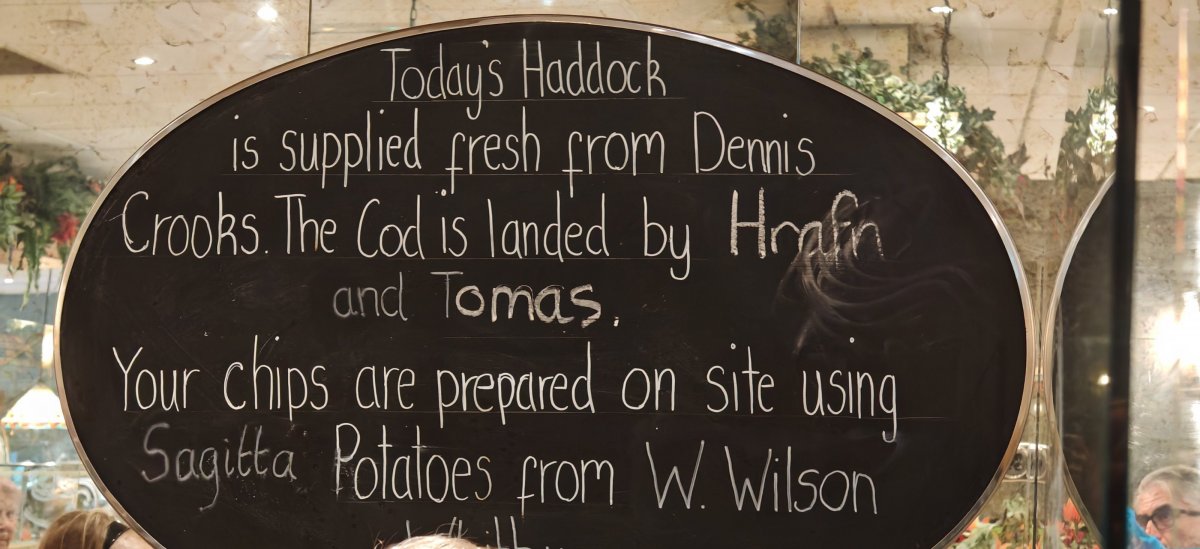 Today's Haddock
is supplied fresh from Dennis
Crooks. The Cod is landed by Hrafn
and Tomas.
Your chips are prepared on site using
Sagitta Potatoes from W. Wilson